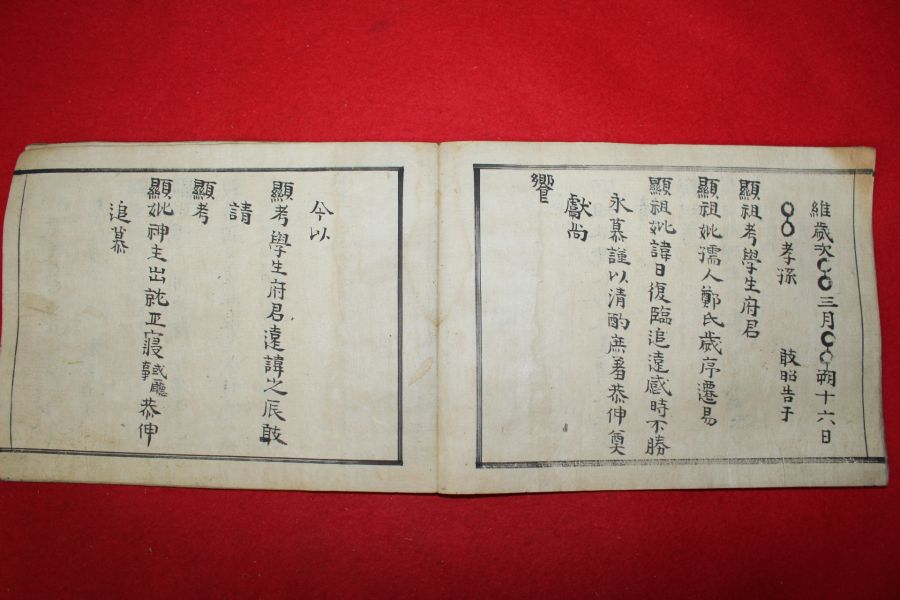 維歲次〇〇三月〇〇朔十六日
〇〇孝孫 敢昭告于
顯祖考學生府君
顯祖妣孺人鄭氏歲序遷易
顯祖妣諱日復臨追遠感時不勝
永慕謹以清酌庶羞恭伸奠
獻尚
饗
今以
顯考學生府君遠諱之辰敢
請
顯考
顯妣神主出就正寢或廳事恭伸
追慕